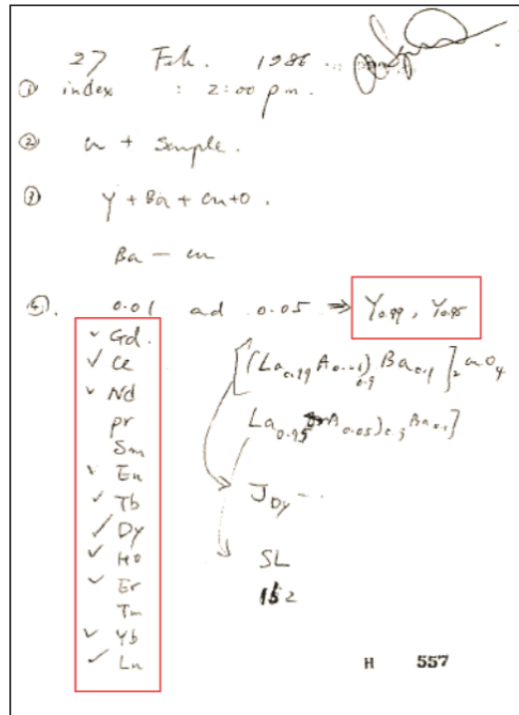 27 Feb. 1986
① index : 2:00 pm.
② Cu + Sample.
③ Y + Ba + Cu + O.
Ba — Cu
④. 0.01 ad 0.05 ⇒ Y0.99, Y0.95
✓ Gd.
✓ Ce
✓ Nd
pr
Sm
✓ Eu
✓ Tb
✓ Dy
✓ Ho
✓ Er
Tm
✓ Yb
✓ Lu
[(La0.99 A0.01)0.9 Ba0.1]2 CuO4
La0.95 A0.05)0.9 Ba0.1]
J Dy - .
SL
152
H 557